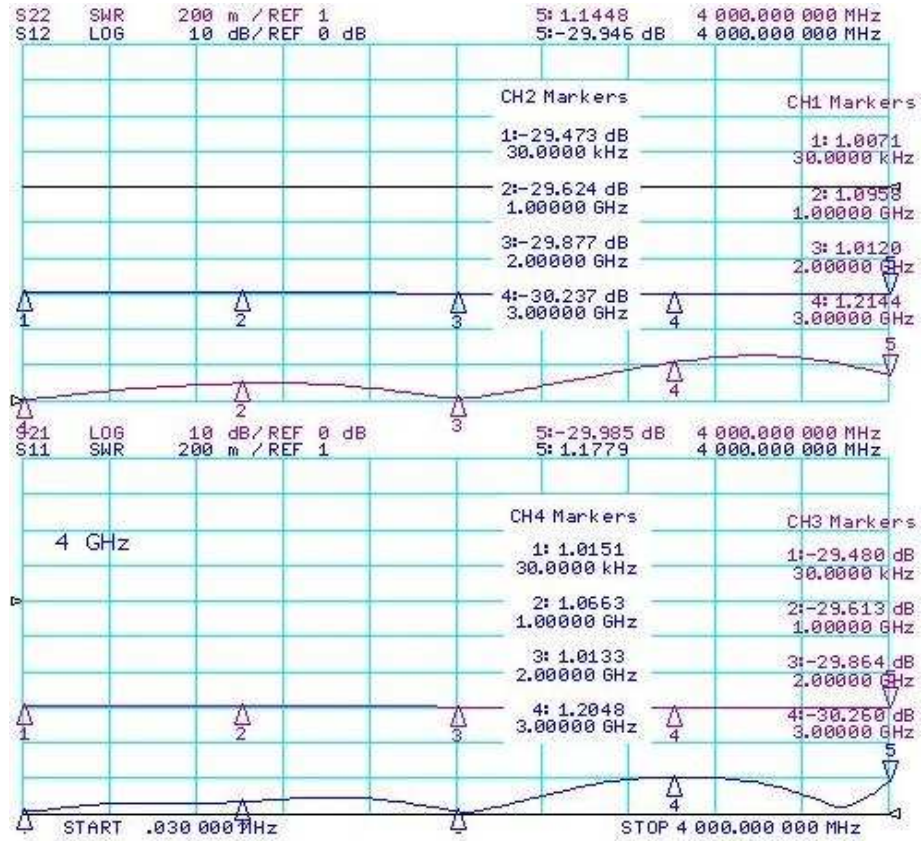 S22 SWR 200 m /REF 1 5: 1.1448 4 000.000 000 MHz
S12 LOG 10 dB/REF 0 dB 5:-29.946 dB 4 000.000 000 MHz
CH2 Markers
1:-29.473 dB
30.0000 kHz
2:-29.624 dB
1.00000 GHz
3:-29.877 dB
2.00000 GHz
4:-30.237 dB
3.00000 GHz
CH1 Markers
1: 1.0071
30.0000 kHz
2: 1.0958
1.00000 GHz
3: 1.0120
2.00000 GHz
4: 1.2144
3.00000 GHz
5
1 2 3 4
5
4 2 3 4
S21 LOG 10 dB/REF 0 dB 5:-29.985 dB 4 000.000 000 MHz
S11 SWR 200 m /REF 1 5: 1.1779 4 000.000 000 MHz
4 GHz
CH4 Markers
1: 1.0151
30.0000 kHz
2: 1.0663
1.00000 GHz
3: 1.0133
2.00000 GHz
4: 1.2048
3.00000 GHz
CH3 Markers
1:-29.480 dB
30.0000 kHz
2:-29.613 dB
1.00000 GHz
3:-29.864 dB
2.00000 GHz
4:-30.260 dB
3.00000 GHz
1 2 3 4
5
4
START .030 000 MHz STOP 4 000.000 000 MHz